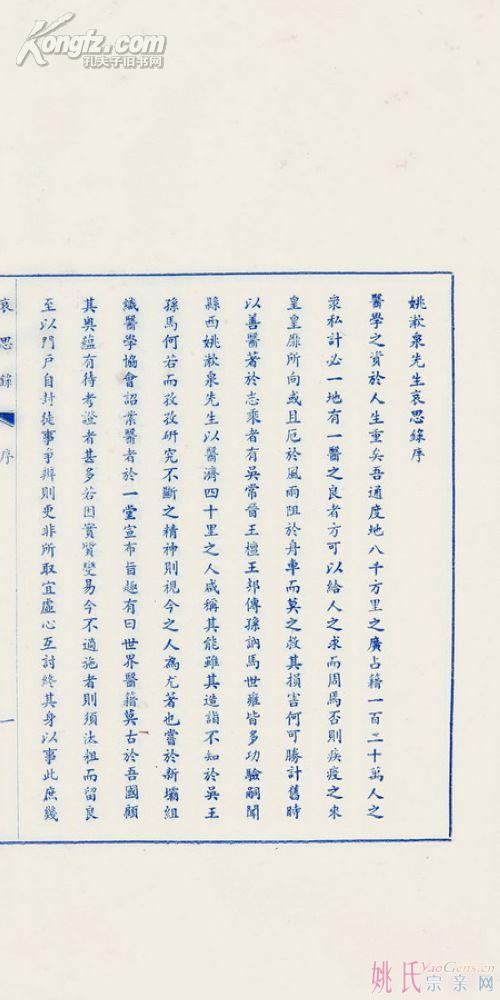 Kongfz.com
孔夫子旧书网
姚漱泉先生哀思錄序
醫學之資於人生重矣吾通度地八千方里之廣占籍一百二十萬人之
衆私計必一地有一醫之良者方可以給人之求而周焉否則疾疫之來
皇皇靡所向或且厄於風雨阻於舟車而莫之救其損害何可勝計舊時
以善醫著於志乘者有吳常晉王檀王邦傳孫訥馬世雍皆多功驗嗣聞
縣西姚漱泉先生以醫濟四十里之人咸稱其能雖其造詣不知於吳王
孫馬何若而孜孜研究不斷之精神則視今之人為尤著也嘗於新壩組
織醫學協會詔業醫者於一堂宣布旨趣有曰世界醫籍莫古於吾國顧
其奥蘊有待考證者甚多若因實質變易今不適施者則須汰粗而留良
至以門戶自封徒事爭辨則更非所取宜虛心互討終其身以事此庶幾
哀思錄 序 一
姚氏 YaoGens.cn
宗亲网